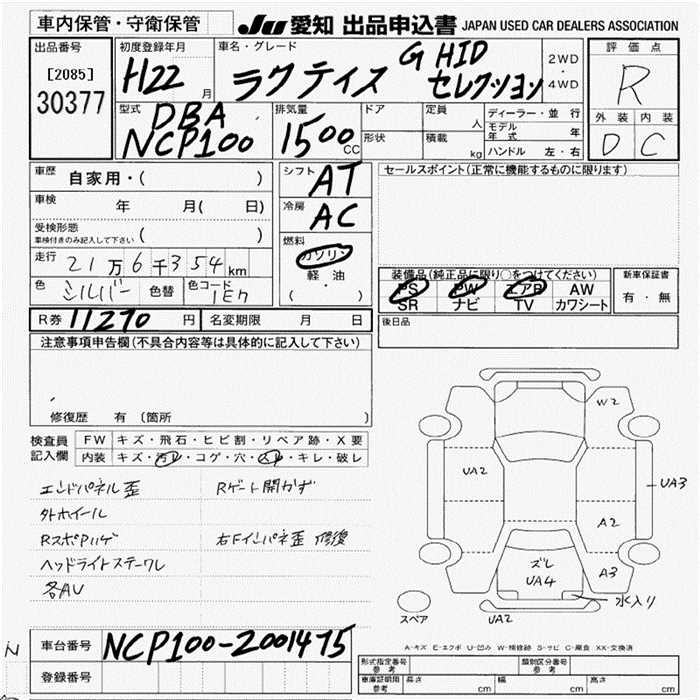 車内保管・守衛保管
JU 愛知 出品申込書 JAPAN USED CAR DEALERS ASSOCIATION
出品番号
[2085]
30377
初度登録年月
H22 月
車名・グレード
ラクティス G HID セレクション
2WD
・
4WD
評価点
R
外装 内装
D C
型式
DBA
NCP100
排気量
1500 CC
ドア
形状
定員 人
積載 kg
ディーラー・並行
モデル年式 年
ハンドル 左・右
車歴
自家用・( )
車検
年 月( 日)
受検形態
車検付きのみ記入して下さい ( )
走行
21万6千354km
色 シルバー 色替 色コード 1E7
シフト
AT
冷房
AC
燃料
ガソリン
軽油
( ・ )
セールスポイント(正常に機能するものに限ります)
装備品(純正品に限り○をつけてください)
PS PW エアB AW
SR ナビ TV カワシート
新車保証書
有・無
後日品
R券 11270 円 名変期限 月 日
注意事項申告欄(不具合内容等は具体的に記入して下さい)
修復歴 有 〔箇所 〕
検査員
記入欄
FW キズ・飛石・ヒビ割・リペア跡・X要
内装 キズ・汚レ・コゲ・穴・スレ・キレ・破レ
エンドパネル歪 Rゲート開かず
外ホイール
RスポPハゲ 右Fインパネ歪 修復
ヘッドライトステーワレ
各AU
W2
UA2
UA3
A2
ズレ
UA4
A3
水入り
UA2
スペア
A-キズ E-エクボ U-凹み W-補修跡 S-サビ C-腐食 XX-交換済
N
車台番号 NCP100-2001475
登録番号
型式指定番号
参考
類別区分番号
参考
車庫証明用
参考
長さ cm 幅 cm 高さ cm